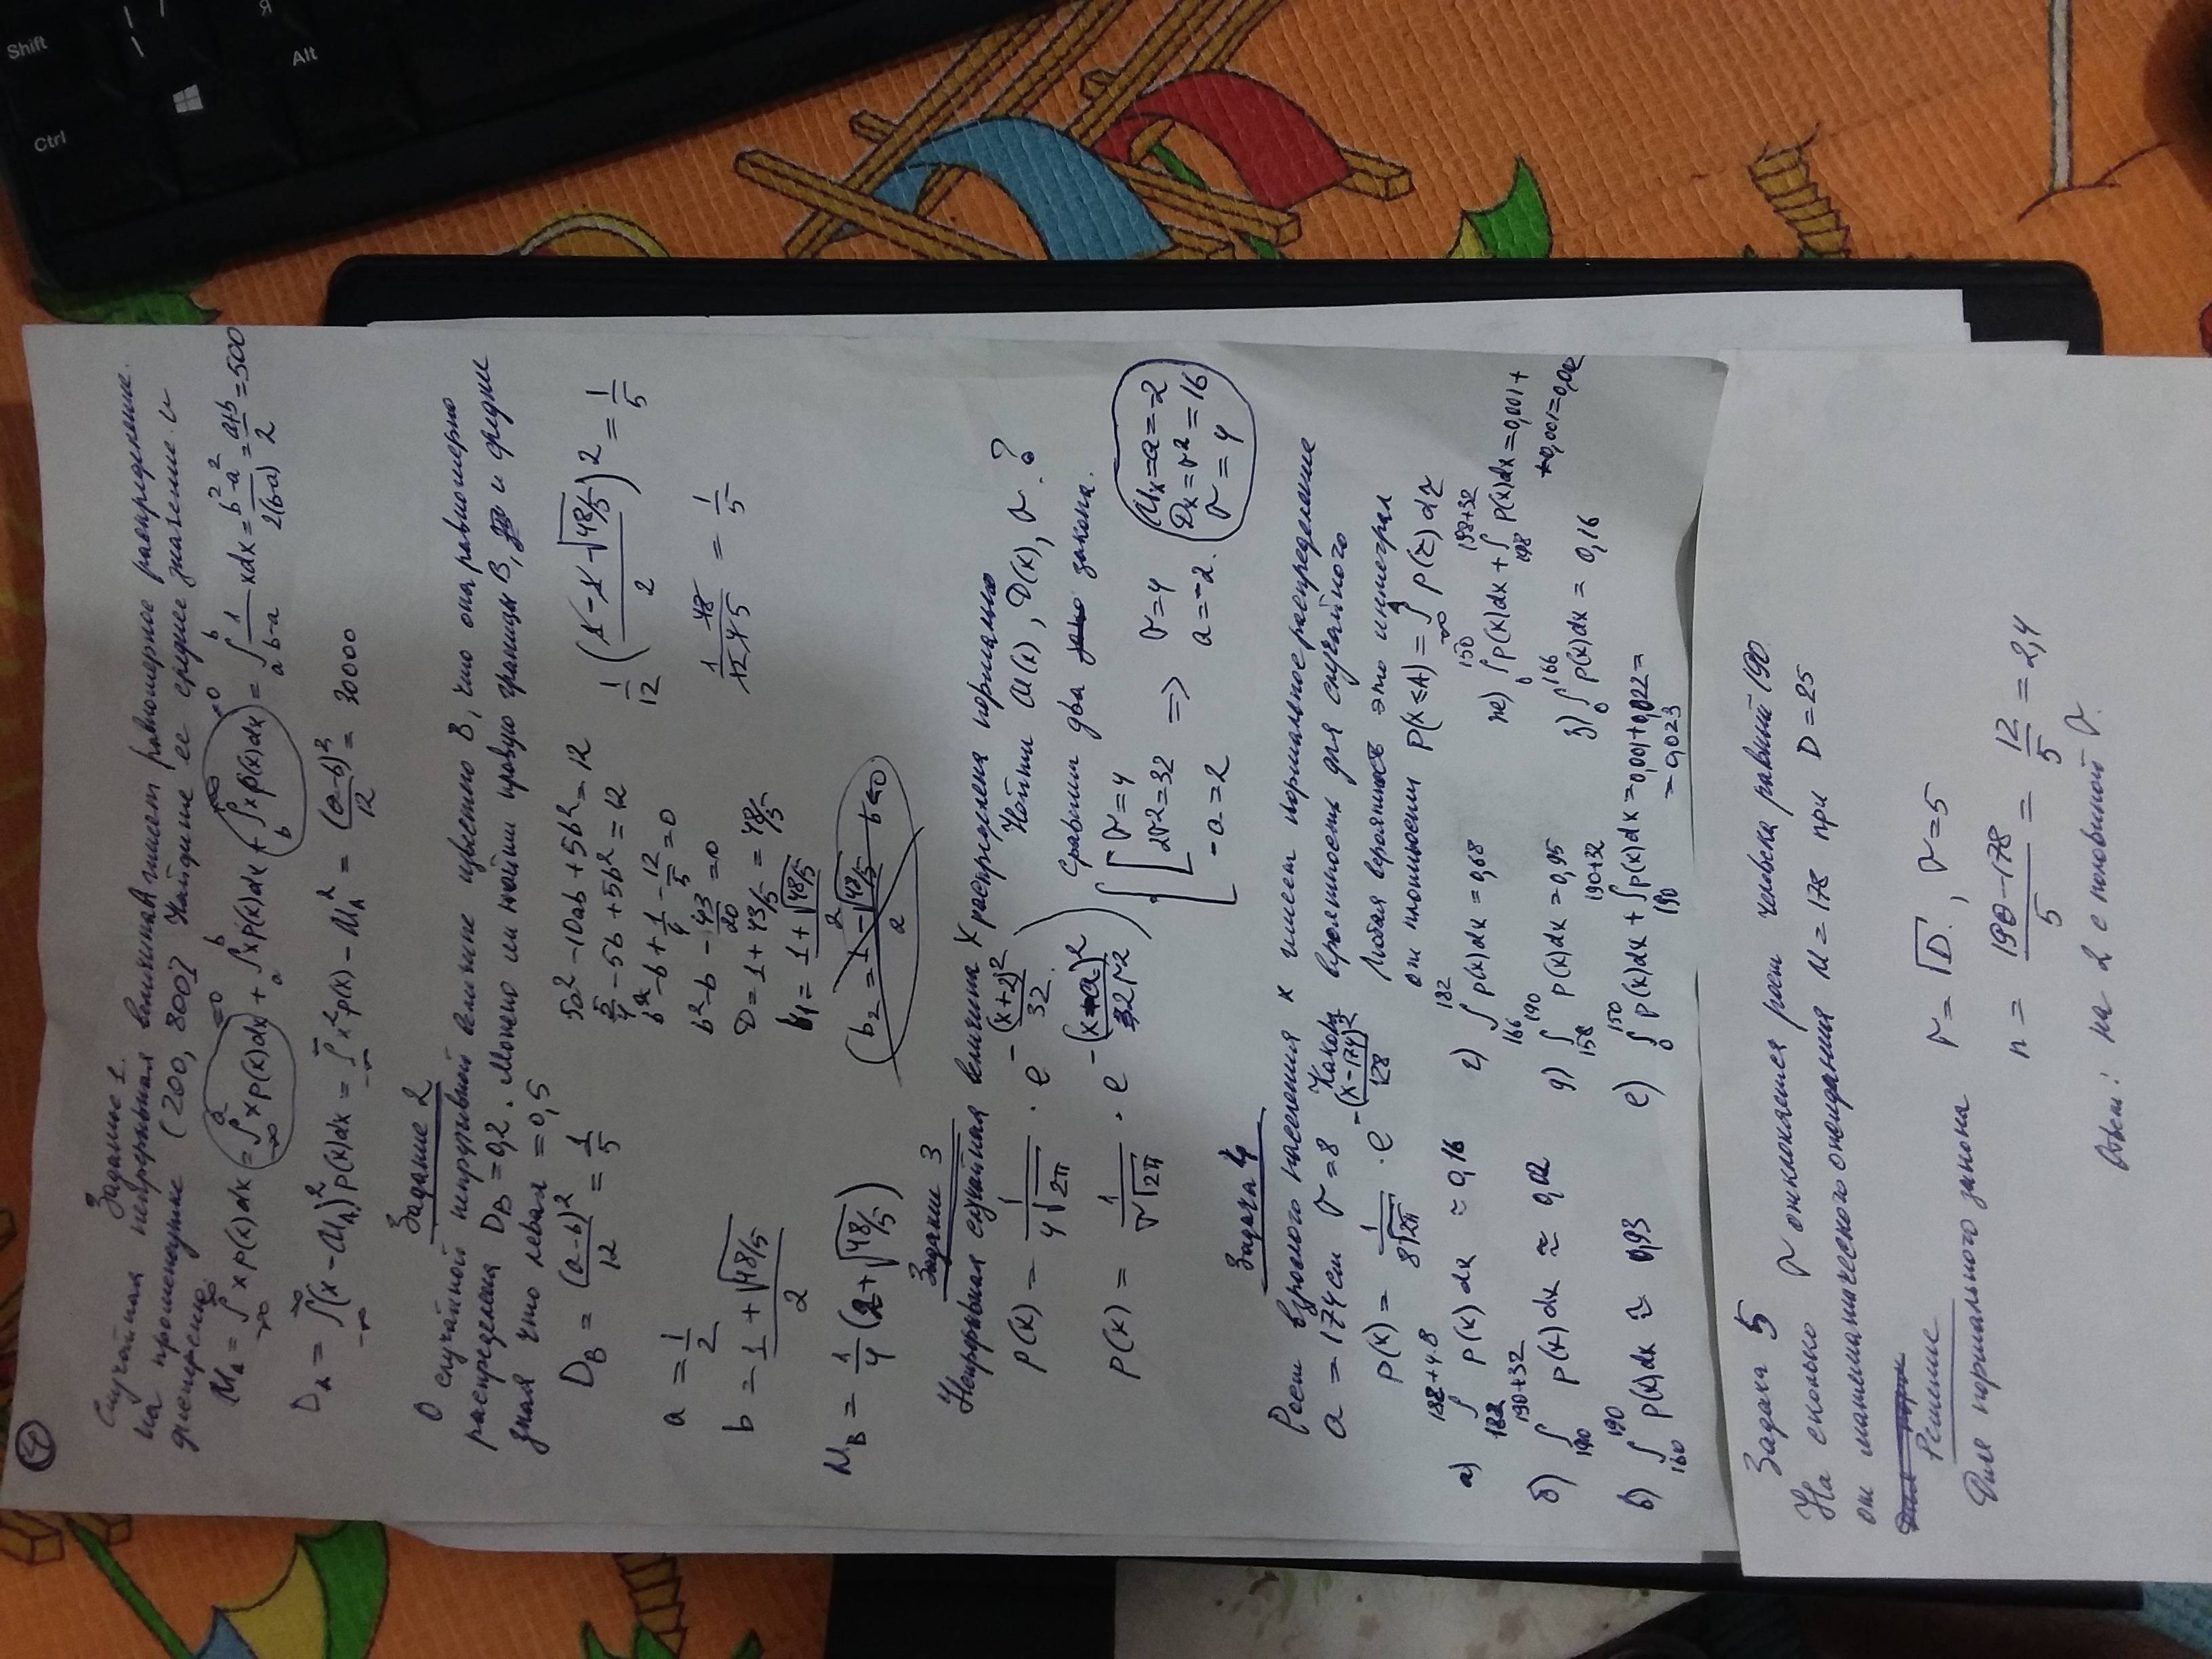 4
Задание 1.
Случайная непрерывная величина A имеет равномерное распределение.
на промежутке (200, 800] Найдите ее среднее значение и
дисперсию.
M_A = ∫_{-∞}^{∞} x p(x) dx = ∫_{-∞}^{a} x p(x) dx =0 + ∫_a^b x p(x) dx + ∫_b^{+∞} x p(x) dx =0 = ∫_a^b 1/(b-a) x dx = (b²-a²)/(2(b-a)) = (a+b)/2 = 500
D_A = ∫_{-∞}^{∞} (x - M_A)² p(x) dx = ∫_{-∞}^{∞} x² p(x) - M_A² = (a-b)²/12 = 30000
Задание 2
О случайной непрерывной величине известно B, что она равномерно
распределена D_B = 0,2. Можно ли найти правую границы B, и средн
зная что левая = 0,5
D_B = (a-b)²/12 = 1/5
a = 1/2
b = (1 + √(48/5))/2
M_B = 1/4 (2 + √(48/5))
5a² - 10ab + 5b² = 12
5/4 - 5b + 5b² = 12
b² - b + 1/4 - 12/5 = 0
b² - b - 43/20 = 0
D = 1 + 43/5 = 48/5
b_1 = (1 + √(48/5))/2
(b_2 = (1 - √(48/5))/2 b<0)
1/12 ((1 - 1 - √(48/5))/2)² = 1/5
1 48/(12 4 5) = 1/5
Задание 3
Непрерывная случайная величина X распределена нормально
p(x) = 1/(4√(2π)) · e^{-(x+2)²/32}
Найти M(x), D(x), σ ?
p(x) = 1/(σ√(2π)) · e^{-(x-a)²/2σ²}
Сравним два закона.
σ = 4
2σ² = 32
-a = 2
=> σ = 4
a = -2.
M_x = a = -2
D_x = σ² = 16
σ = 4
Задача 4
Рост взрослого населения x имеет нормальное распределение
a = 174 cm σ = 8 Какова вероятность для случайного
p(x) = 1/(8√(2π)) · e^{-(x-174)²/128}
Любая вероятность это интеграл
от плотности p(x ≤ A) = ∫_{-∞}^{A} p(τ) dτ
а) ∫_{182}^{182+4·8} p(x) dx ≈ 0,16
г) ∫_{166}^{182} p(x) dx = 0,68
ж) ∫_0^{150} p(x) dx + ∫_{198}^{198+32} p(x) dx = 0,001 +
+ 0,001 = 0,002
б) ∫_{190}^{190+32} p(x) dx ≈ 0,02
д) ∫_{158}^{190} p(x) dx = 0,95
з) ∫_0^{166} p(x) dx = 0,16
в) ∫_{160}^{190} p(x) dx ≈ 0,93
е) ∫_0^{150} p(x) dx + ∫_{190}^{190+32} p(x) dx = 0,001 + 0,022 =
= 0,023
Задача 5
На сколько σ отклоняется рост человека равный 190
от математического ожидания M = 178 при D = 25
Решение
Для нормального закона σ = √D., σ = 5
n = (190 - 178)/5 = 12/5 = 2,4
Ответ: на 2 с половиной σ.
Shift
Ctrl
Alt
Я